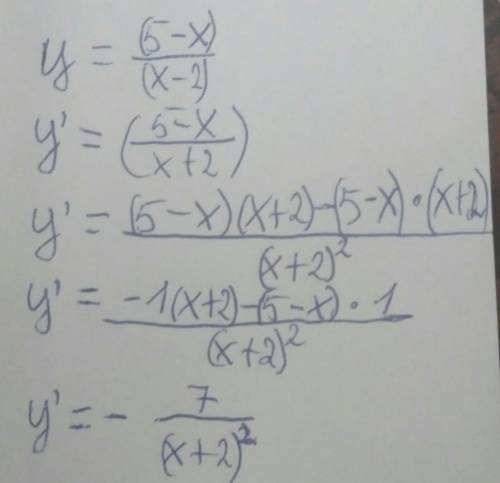 y = (5-x)/(x-2)
y' = (5-x/x+2)
y' = (5-x)(x+2)-(5-x)·(x+2)/(x+2)²
y' = -1(x+2)-(5-x)·1/(x+2)²
y' = - 7/(x+2)²